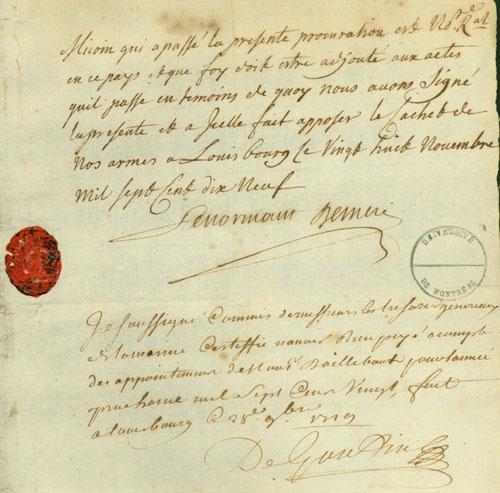 Micoin qui a passé la presente procuration est No.re R.al
en ce pays et que foy doit estre adjouté aux actes
quil passe en temoins de quoy nous avons Signé
la presente et a Jcelle fait apposer le Cachet de
Nos armes a Louisbourg le Vingt huit Novembre
Mil sept Cent dix Neuf
Lenormant Demezi
UNIVERSITÉ
DE MONTRÉAL
Je soussigné Commis de messieurs les tresoriers generaux
de la marine Certiffie navoir Rien payé acompte
des appointemens de Mons.r Baillebout pour lannée
prochaine mil sept Cens Vingt, fait
a louisbourg ce 28.e 9bre 1719